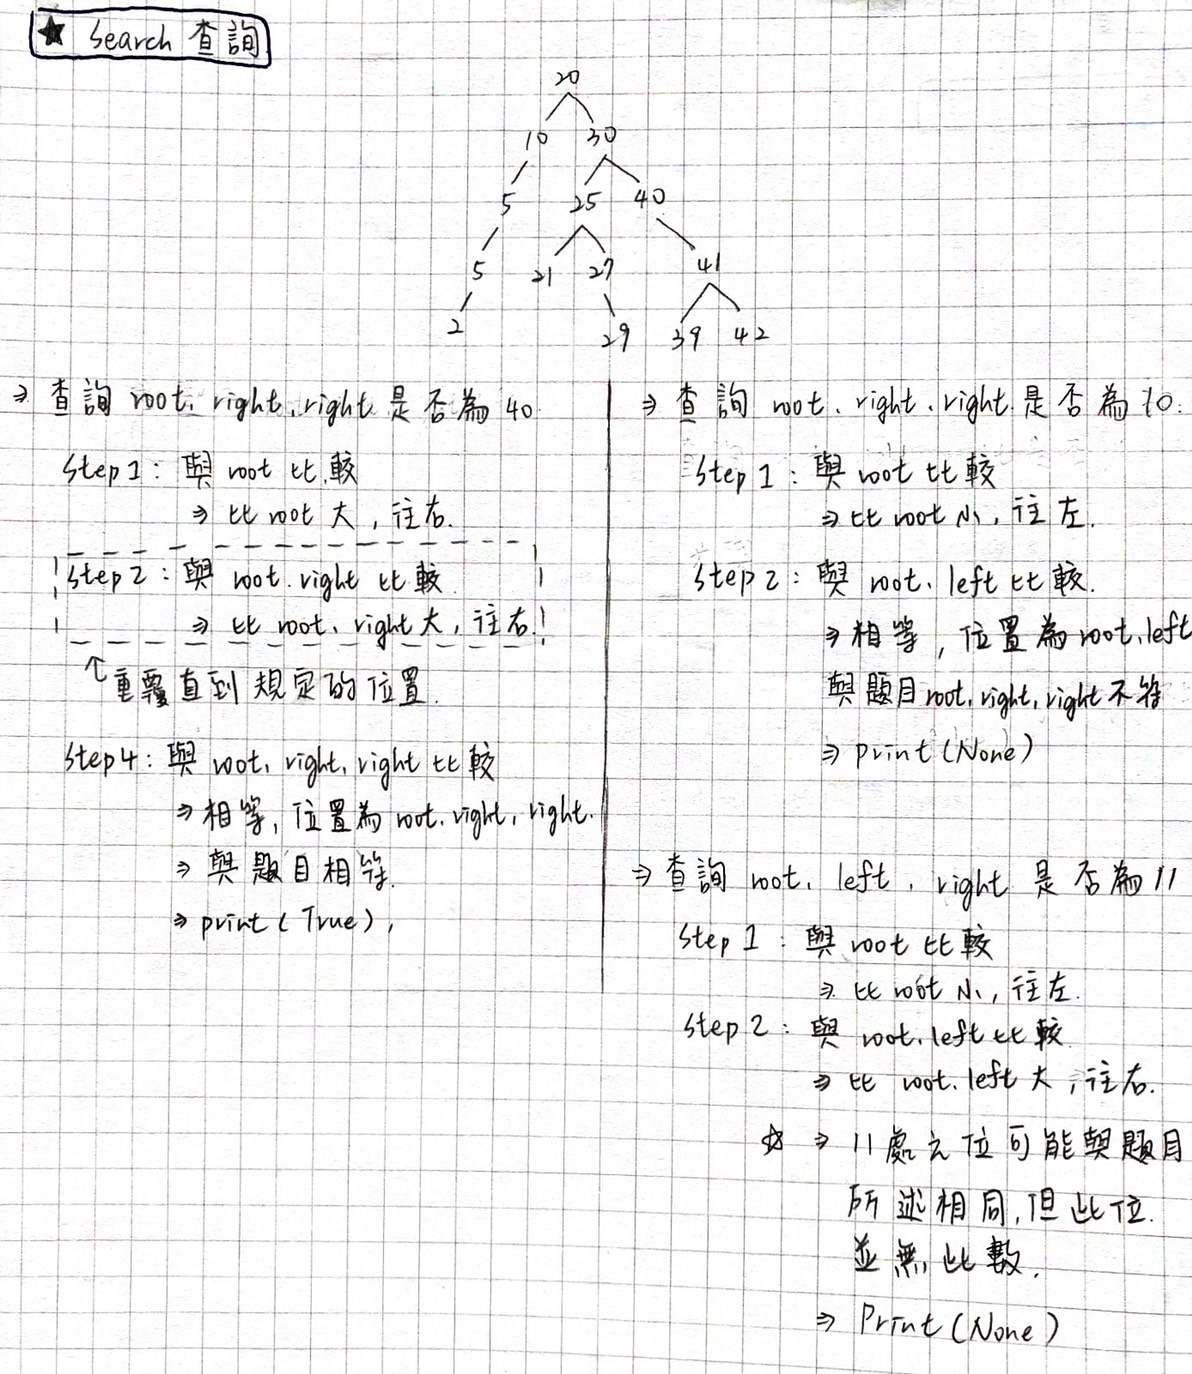 ★ Search 查詢
20
10 30
5 25 40
5 21 27 41
2 29 39 42
⇒ 查詢 root. right. right 是否為 40
Step 1: 與 root 比較
⇒ 比 root 大, 往右.
Step 2: 與 root. right 比較
⇒ 比 root. right 大, 往右.
↑重覆直到規定的位置.
Step 4: 與 root. right. right 比較
⇒ 相等, 位置為 root. right. right.
⇒ 與題目相等.
⇒ print (True),
⇒ 查詢 root. right. right. 是否為 10.
Step 1: 與 root 比較
⇒ 比 root 小, 往左.
Step 2: 與 root. left 比較.
⇒ 相等, 位置為 root. left
與題目 root. right. right 不符
⇒ print (None)
⇒ 查詢 root. left. right 是否為 11
Step 1: 與 root 比較
⇒ 比 root 小, 往左.
Step 2: 與 root. left 比較
⇒ 比 root. left 大, 往右.
☆ ⇒ 11 處之位可能與題目
所述相同, 但此位.
並無此數.
⇒ Print (None)